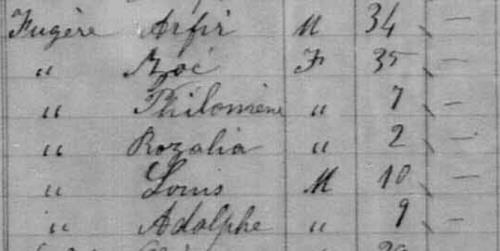 Fugère Arfir M 34 —
" Zoé F 35 —
" Philomène " 7 —
" Rozalia " 2 —
" Louis M 10 —
" Adolphe " 9 —